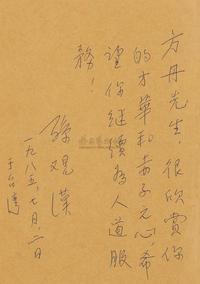 方丹先生,很欣赏你
的才華和赤子之心,希
望你继續為人道服
務!
孫观漢
一九八五,七月,二日
于台灣